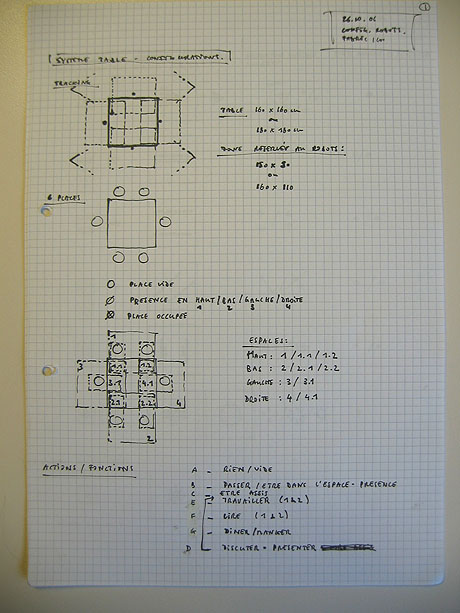 1
26.10.06
CONFIG. ROBOTS.
SYSTÈME TABLE - CONFIGURATIONS.
TRACKING
TABLE 160 x 160 cm
ou
180 x 180 cm
ZONE RESERVÉE AU ROBOTS :
ou
160 x 110
6 PLACES
PLACE VIDE
PRESENCE EN HAUT / BAS / GAUCHE / DROITE
1 2 3 4
PLACE OCCUPÉE
1
3 1.1 1.2
3.1 4.1
2.1 2.2 4
2
ESPACES :
HAUT : 1 / 1.1 / 1.2
BAS : 2 / 2.1 / 2.2
GAUCHE : 3 / 3.1
DROITE : 4 / 4.1
ACTIONS / FONCTIONS
A - RIEN / VIDE
B - PASSER / ETRE DANS L'ESPACE - PRESENCE
C - ETRE ASSIS
E - TRAVAILLER (1 à 2)
F - LIRE (1 à 2)
G - DINER / MANGER
D - DISCUTER - PRESENTER